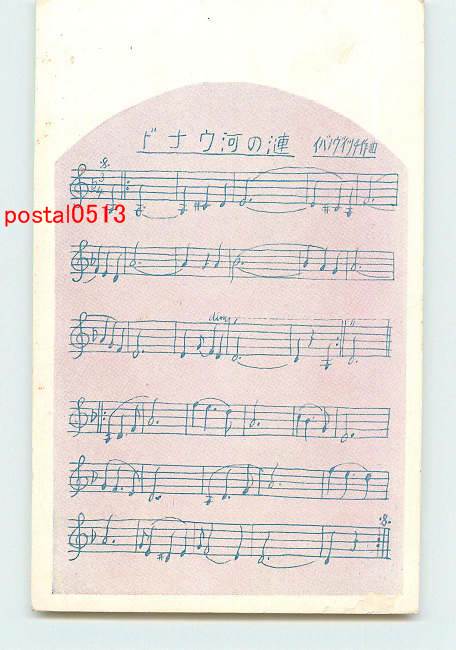 ドナウ河の漣 イバノヴイツチ作曲
3
4
postal0513
dim